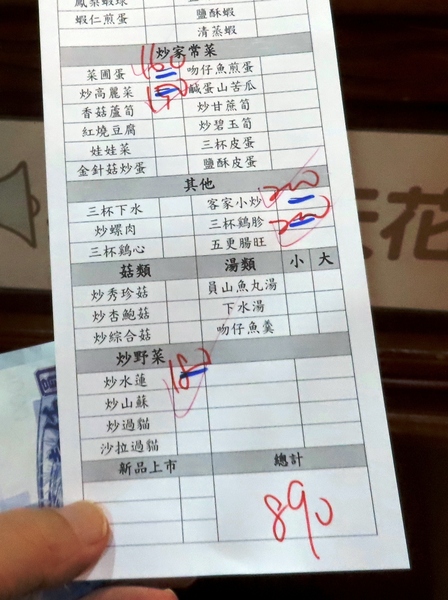 鳳梨蝦球 鹽酥蝦
蝦仁煎蛋 清蒸蝦
炒家常菜
菜圃蛋 160 吻仔魚煎蛋
炒高麗菜 150 鹹蛋山苦瓜
香菇蘆筍 炒甘蔗筍
紅燒豆腐 炒碧玉筍
娃娃菜 三杯皮蛋
金針菇炒蛋 鹽酥皮蛋
其他
三杯下水 客家小炒 200
炒螺肉 三杯鷄胗 200
三杯鷄心 五更腸旺
菇類 湯類 小 大
炒秀珍菇 員山魚丸湯
炒杏鮑菇 下水湯
炒綜合菇 吻仔魚羹
炒野菜
炒水蓮 180
炒山蘇
炒過貓
沙拉過貓
新品上市 總計
890
花